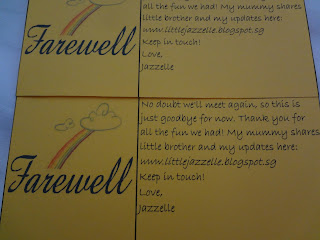 all the fun we had! My mummy shares
little brother and my updates here:
www.littlejazzelle.blogspot.sg
Keep in touch!
Love,
Jazzelle
Farewell
No doubt we'll meet again, so this is
just goodbye for now. Thank you for
all the fun we had! My mummy shares
little brother and my updates here:
www.littlejazzelle.blogspot.sg
Keep in touch!
Love,
Jazzelle
Farewell